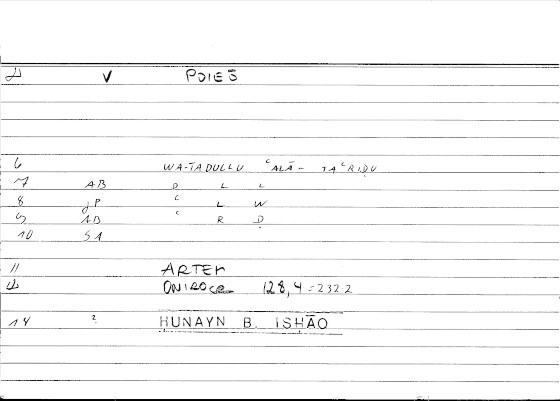 V POIEŌ
6 WA-TADULLU ʿALĀ - TAʿRIḌU
7 AB D L L
8 JP ʿ L W
9 AB ʿ R Ḍ
10 SA
11 ARTEM
ONIROCR 128,4 = 232 2
14 ? HUNAYN B. ISHĀQ